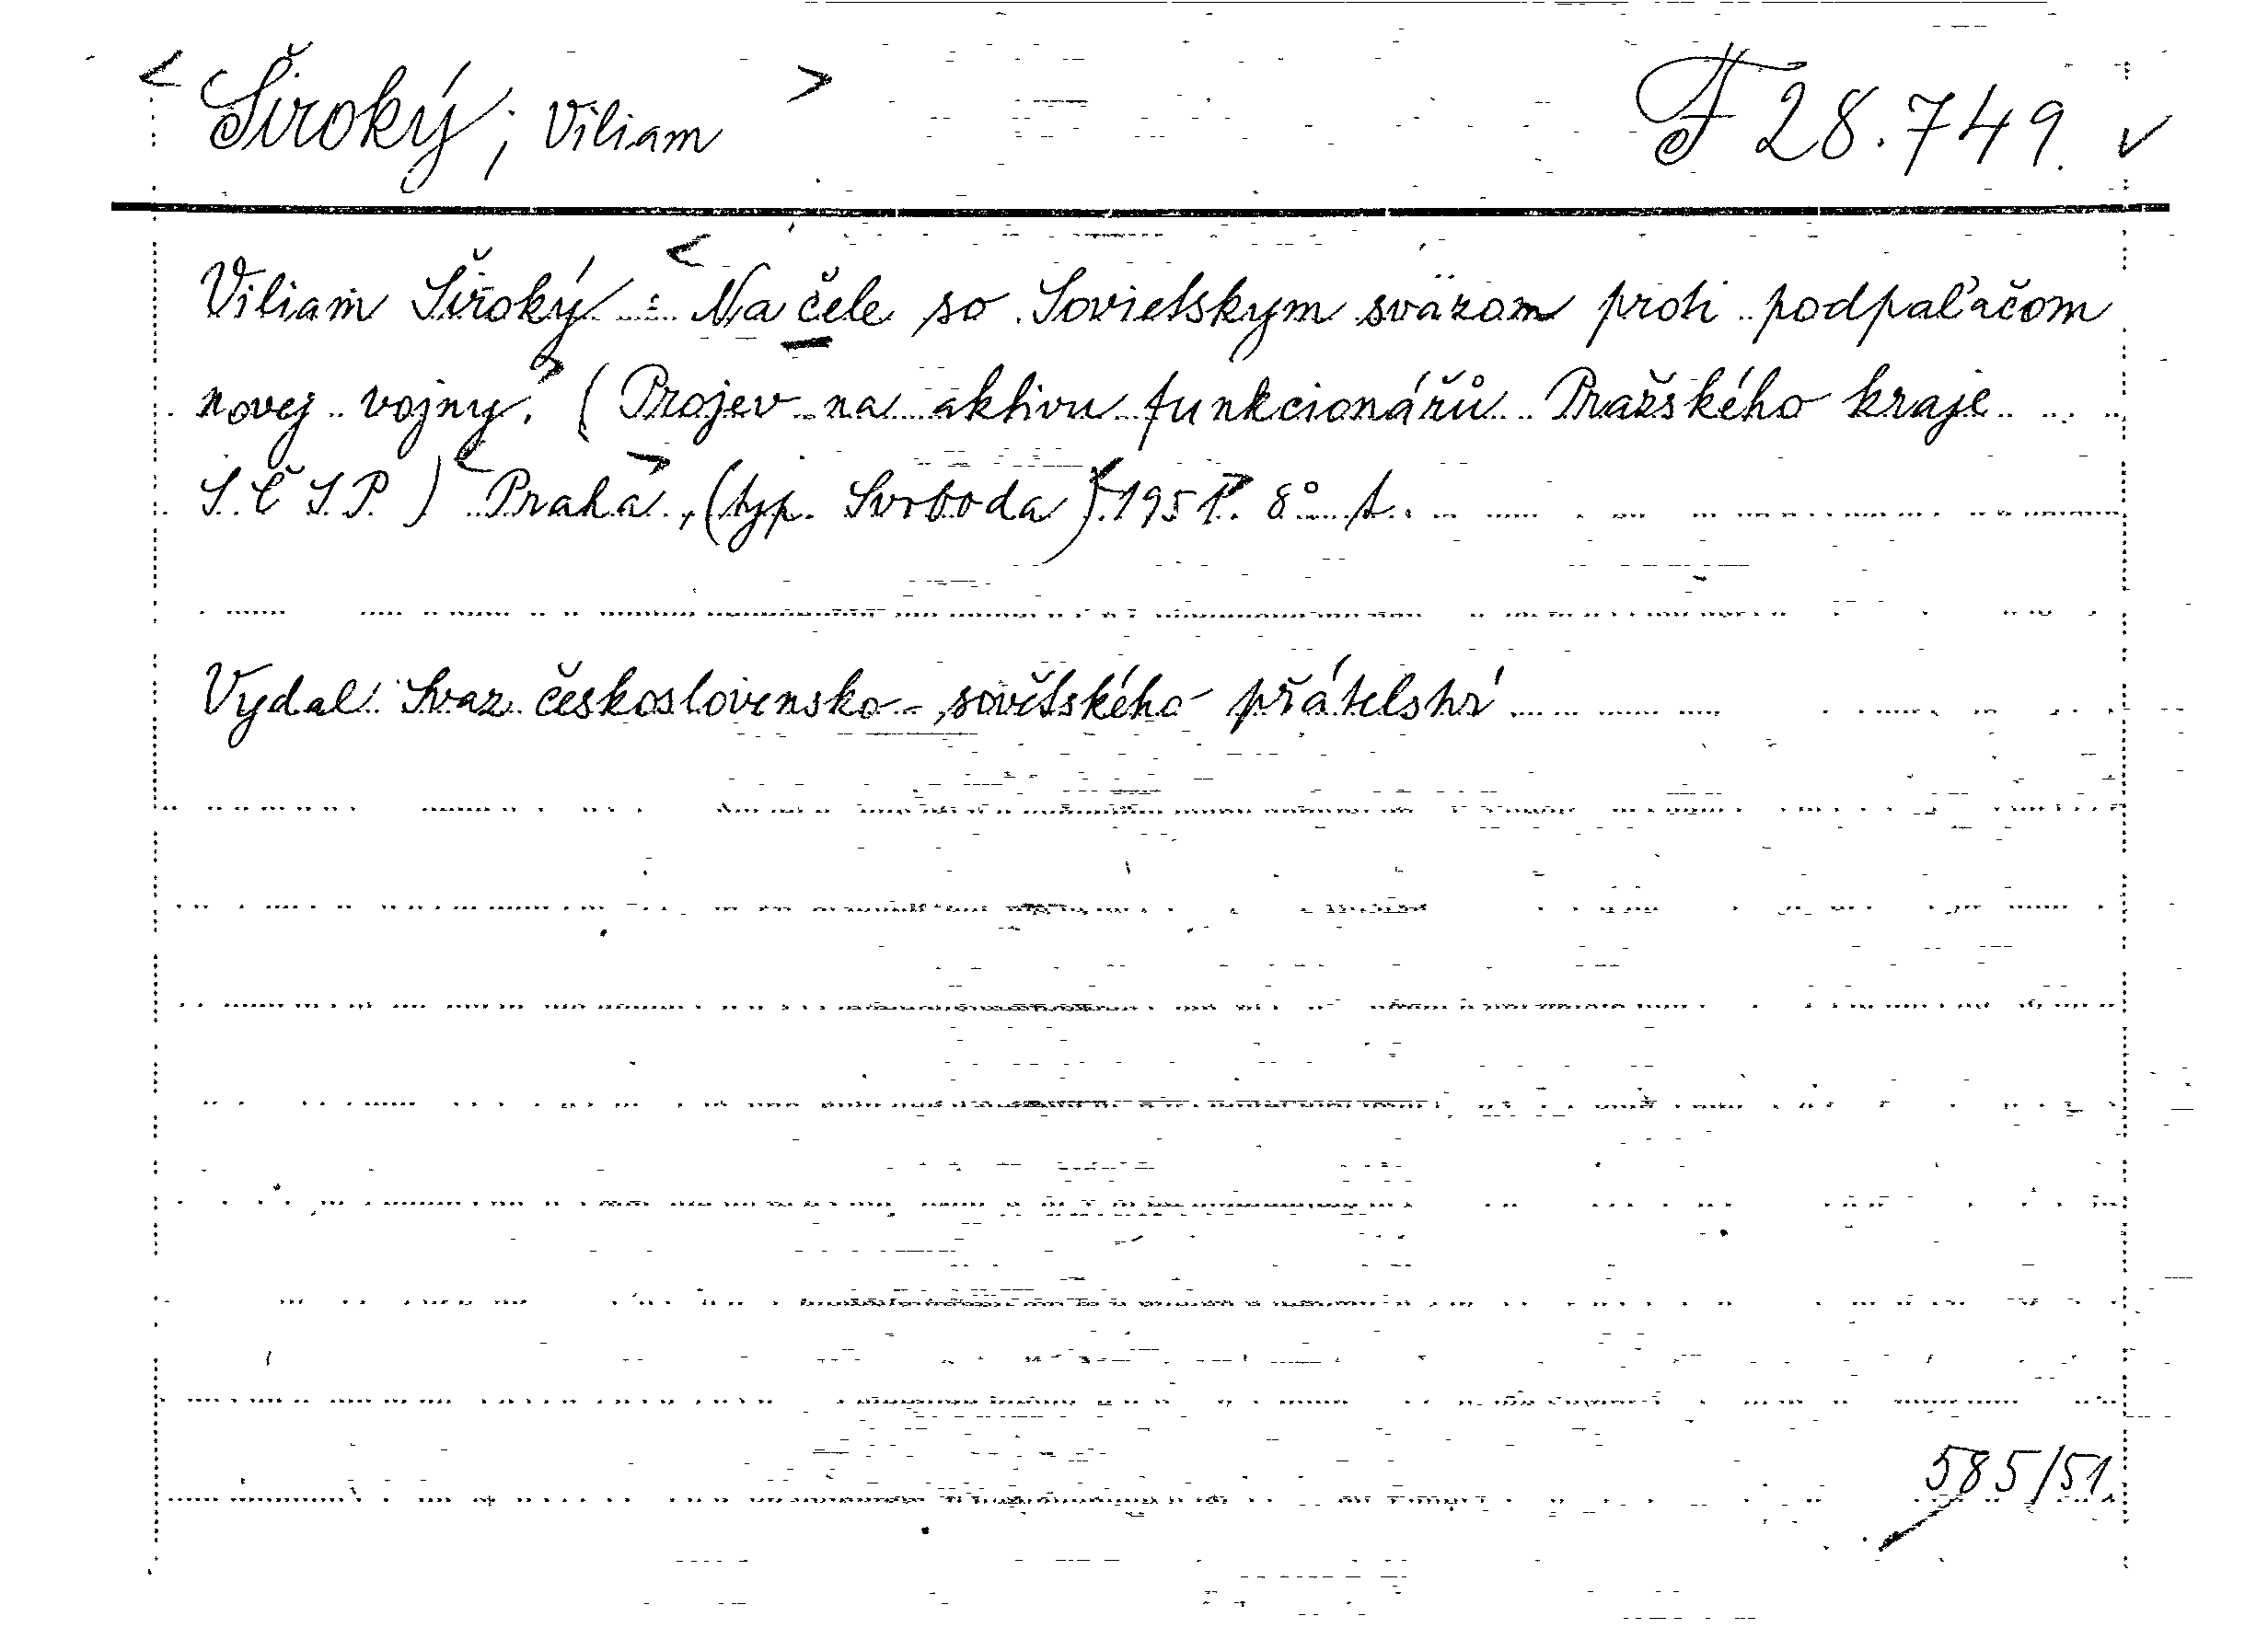 < Široký, Viliam > F 28.749. v
Viliam Široký : < Na čele so Sovietskym sväzom proti podpaľačom
novej vojny. > ( Projev na aktivu funkcionářů Pražského kraje
S.Č.S.P. ) < Praha >, (typ. Svoboda) < 1951 >. 8° t.
Vydal Svaz československo-sovětského přátelství
585/51.